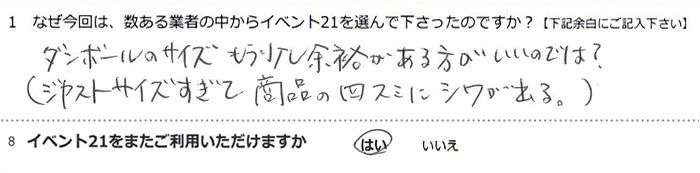 1 なぜ今回は、数ある業者の中からイベント21を選んで下さったのですか？【下記余白にご記入下さい】
ダンボールのサイズ もう少し余裕がある方がいいのでは？
（ジャストサイズすぎて 商品の四スミにシワが出る。）
8 イベント21をまたご利用いただけますか はい いいえ